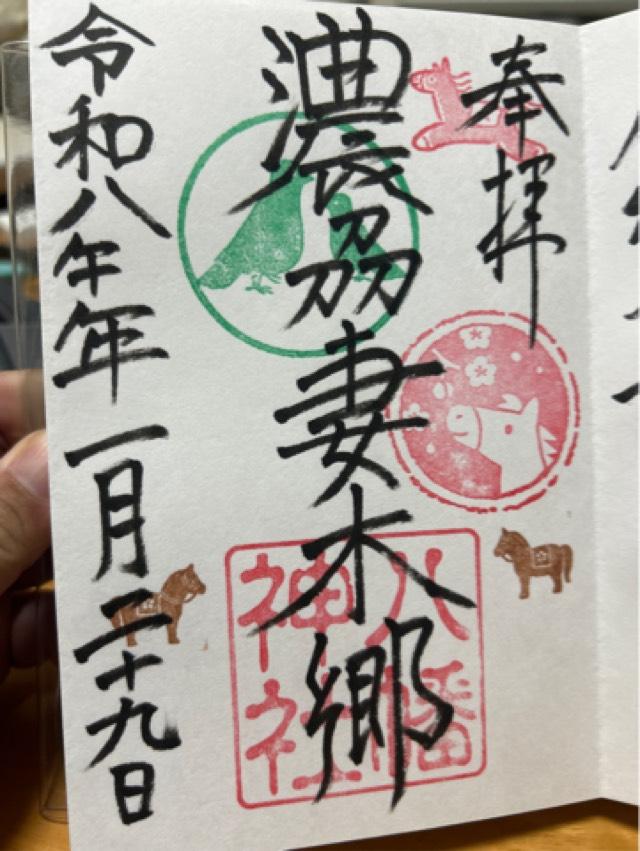 奉拝
濃刕妻木郷
八幡
神社
令和八午年一月二十九日